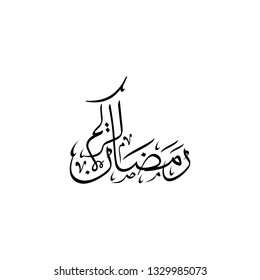 رَمَضَان الكريم
www.shutterstock.com · 1329985073